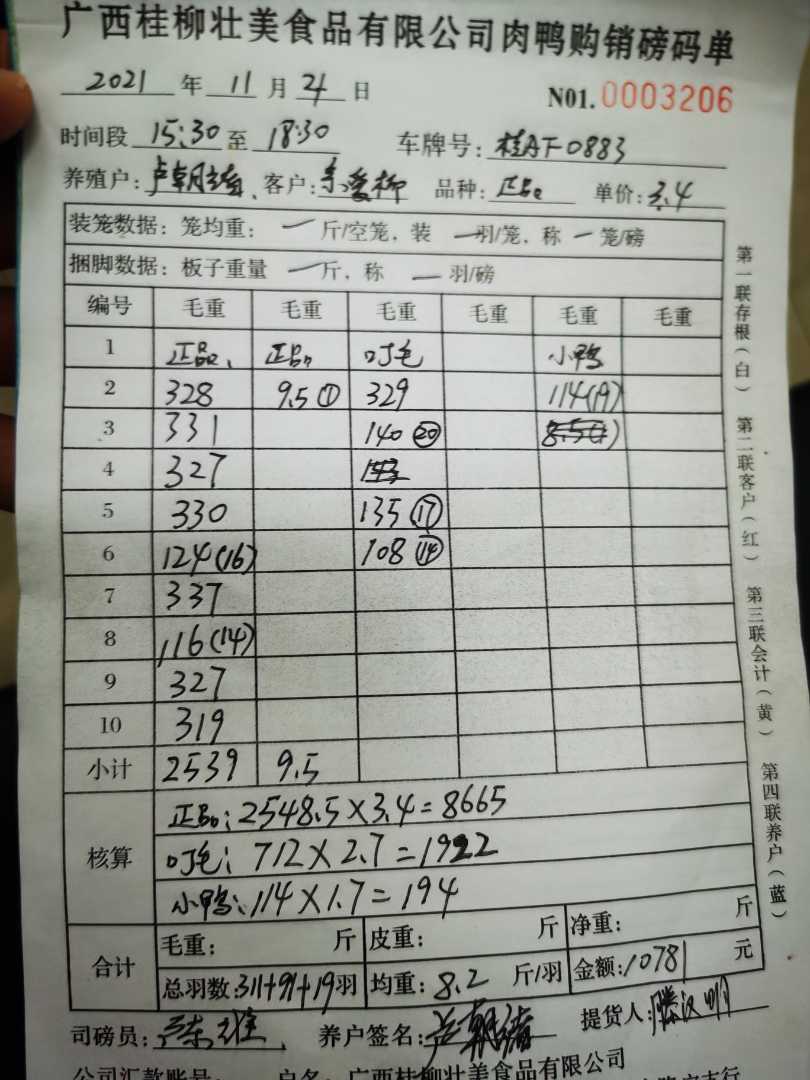 广西桂柳壮美食品有限公司肉鸭购销磅码单
2021 年 11 月 24 日 N01. 0003206
时间段 15:30 至 18:30 车牌号: 桂AF0883
养殖户: 卢朝 客户: 爱柳 品种: 正品 单价: 3.4
装笼数据: 笼均重: 一 斤/空笼, 装 一 羽/笼, 称 一 笼/磅
捆脚数据: 板子重量 一 斤, 称 一 羽/磅
编号 毛重 毛重 毛重 毛重 毛重 毛重
1 正品 正品 叮毛 小鸭
2 328 9.5① 329 114(19)
3 331 140⑳
4 327
5 330 135⑰
6 124(16) 108⑭
7 337
8 116(14)
9 327
10 319
小计 2539 9.5
核算
正品: 2548.5×3.4=8665
叮毛: 712×2.7=1922
小鸭: 114×1.7=194
合计
毛重: 斤 皮重: 斤 净重: 斤
总羽数: 311+91+19羽 均重: 8.2 斤/羽 金额: 10781 元
司磅员: 养户签名: 卢朝 提货人: 滕汉明
公司汇款账号: 户名: 广西桂柳壮美食品有限公司
第一联存根(白)
第二联客户(红)
第三联会计(黄)
第四联养户(蓝)